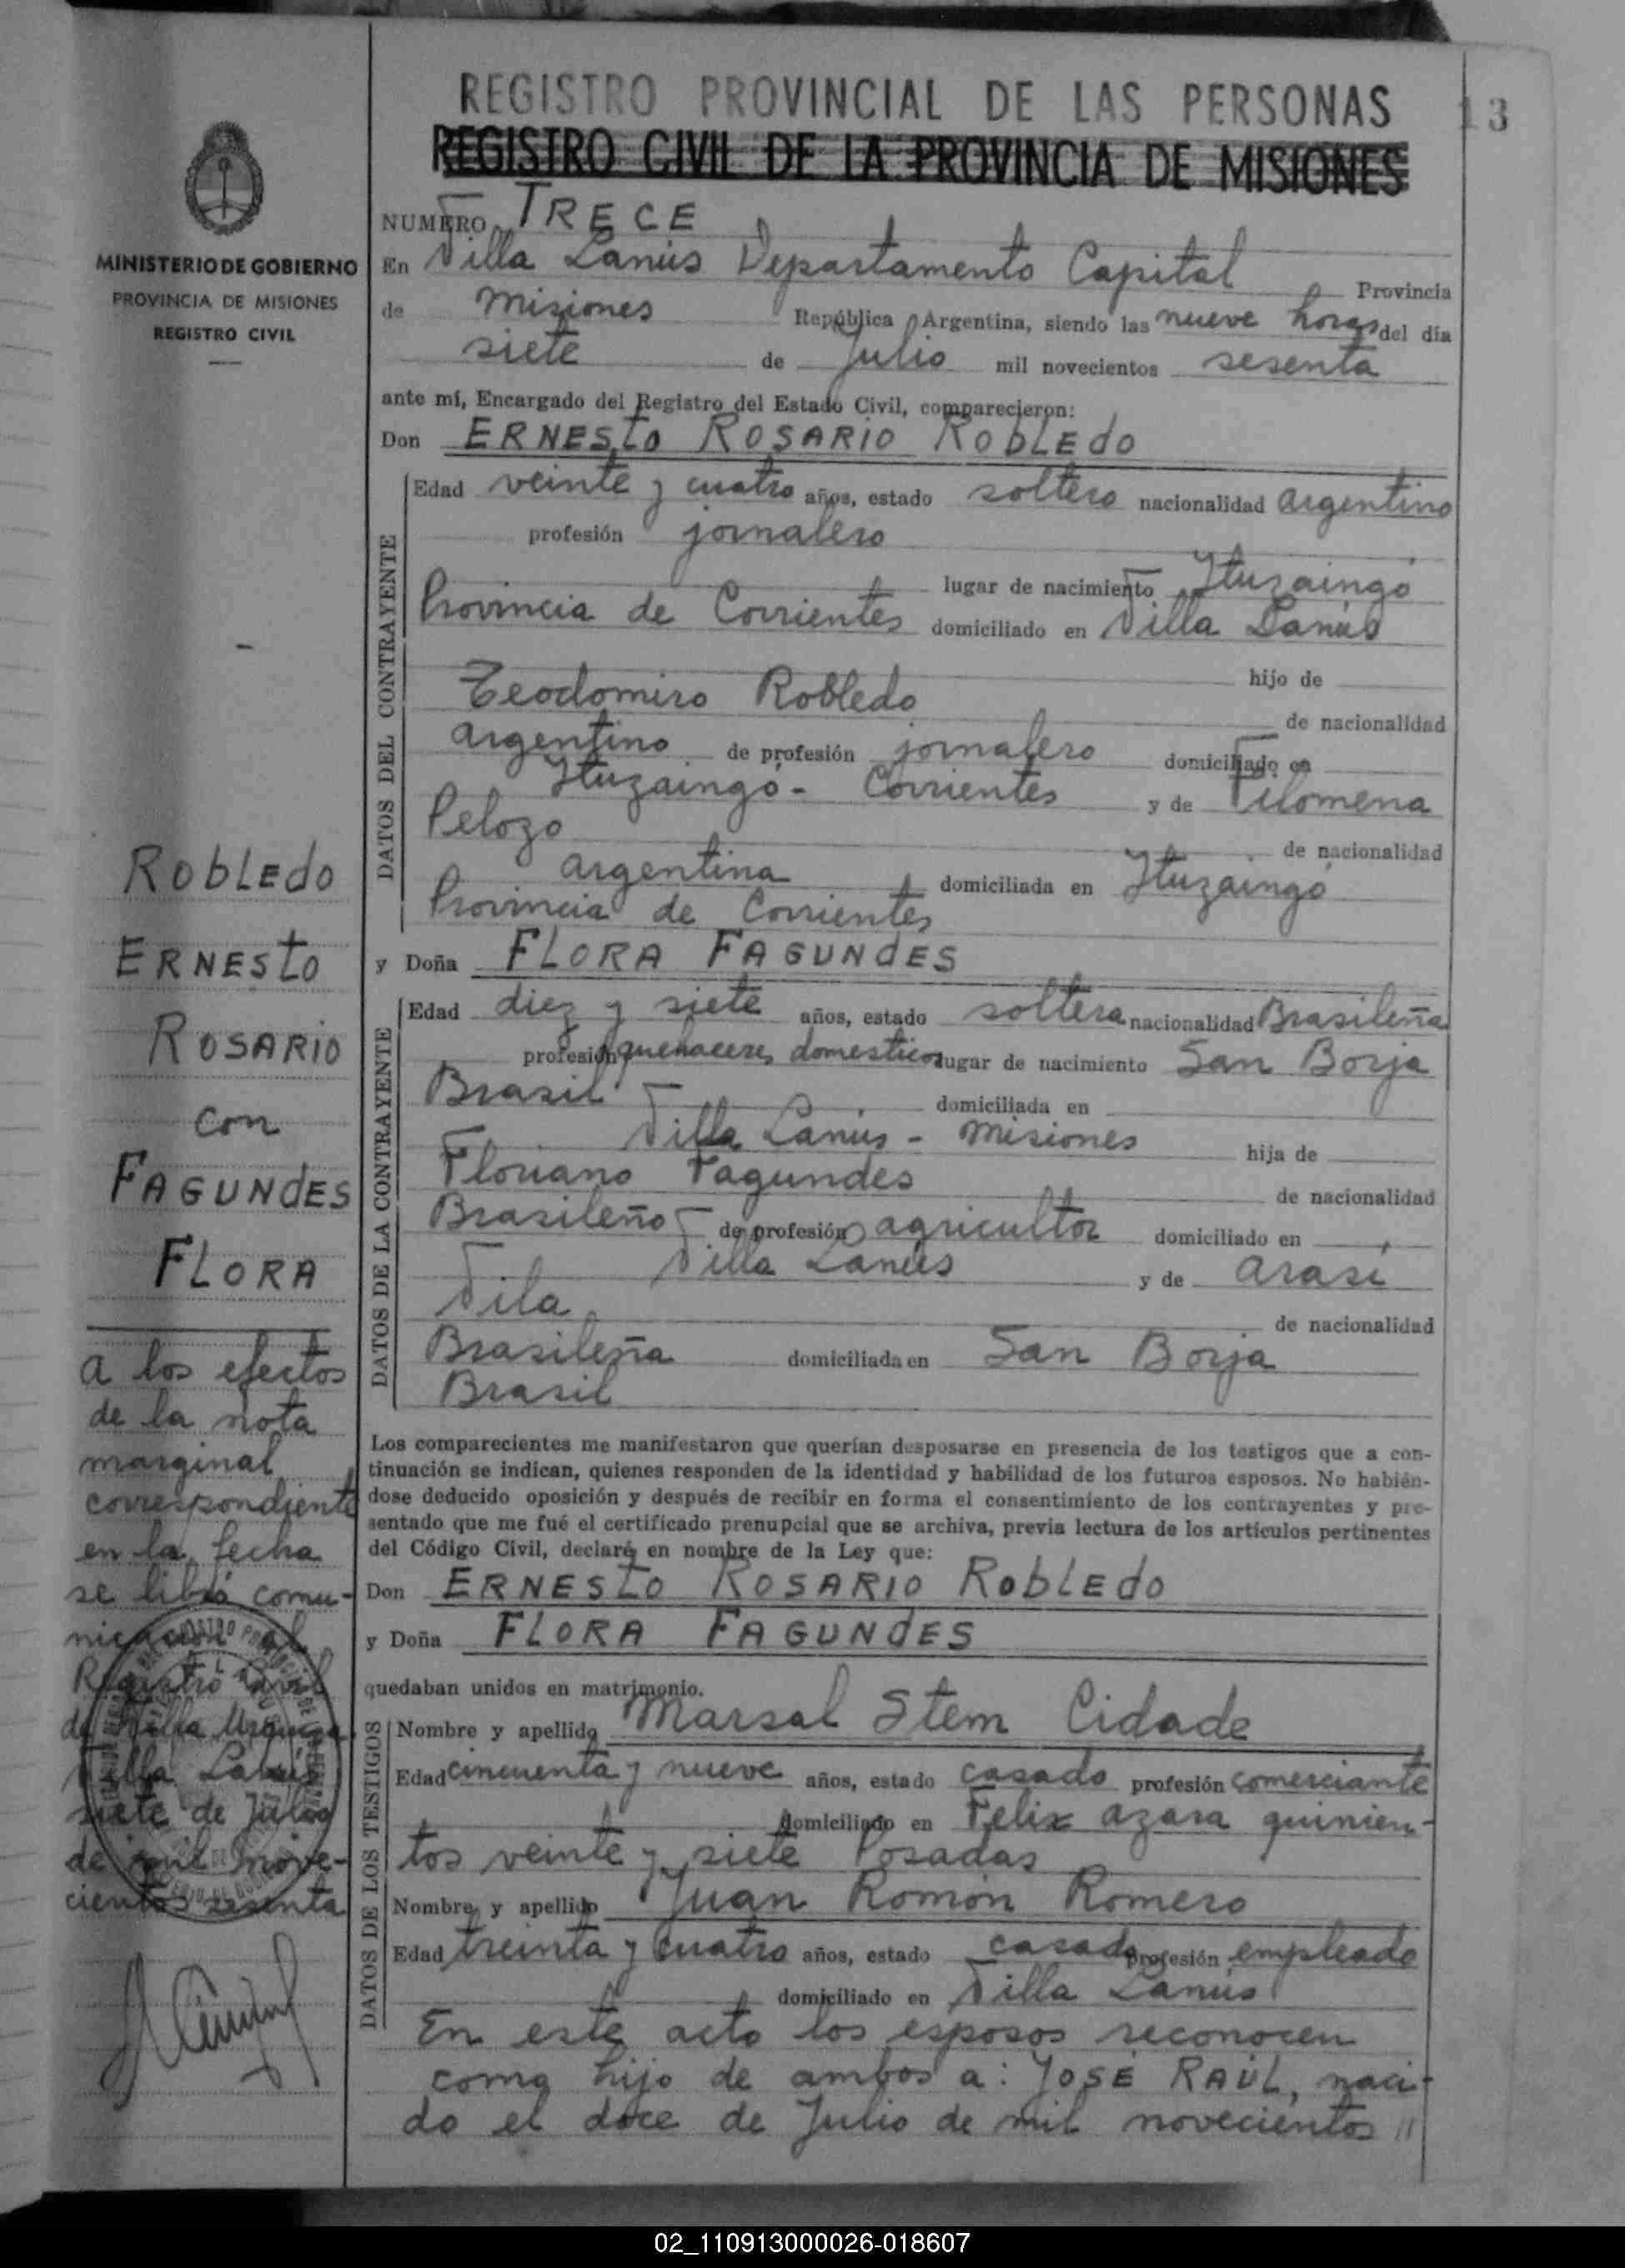 REGISTRO PROVINCIAL DE LAS PERSONAS
13
REGISTRO CIVIL DE LA PROVINCIA DE MISIONES
MINISTERIO DE GOBIERNO
PROVINCIA DE MISIONES
REGISTRO CIVIL
NUMERO TRECE
En Villa Lanús Departamento Capital Provincia
de Misiones República Argentina, siendo las nueve horas del día
siete de Julio mil novecientos sesenta
ante mí, Encargado del Registro del Estado Civil, comparecieron:
Don ERNESTO ROSARIO ROBLEDO
DATOS DEL CONTRAYENTE
Edad veinte y cuatro años, estado soltero nacionalidad argentino
profesión jornalero
lugar de nacimiento Ituzaingó
Provincia de Corrientes domiciliado en Villa Lanús
hijo de
Teodomiro Robledo
de nacionalidad
argentino de profesión jornalero domiciliado en
Ituzaingó - Corrientes y de Filomena
Pelozo
de nacionalidad
argentina domiciliada en Ituzaingó
Provincia de Corrientes
y Doña FLORA FAGUNDES
DATOS DE LA CONTRAYENTE
Edad diez y siete años, estado soltera nacionalidad Brasileña
profesión quehaceres domesticos lugar de nacimiento San Borja
Brasil domiciliada en
Villa Lanús - Misiones hija de
Floriano Fagundes
de nacionalidad
Brasileño de profesión agricultor domiciliado en
Villa Lanús y de Arasi
Vila
de nacionalidad
Brasileña domiciliada en San Borja
Brasil
Los comparecientes me manifestaron que querían desposarse en presencia de los testigos que a con-
tinuación se indican, quienes responden de la identidad y habilidad de los futuros esposos. No habién-
dose deducido oposición y después de recibir en forma el consentimiento de los contrayentes y pre-
sentado que me fué el certificado prenupcial que se archiva, previa lectura de los artículos pertinentes
del Código Civil, declaré en nombre de la Ley que:
Don ERNESTO ROSARIO ROBLEDO
y Doña FLORA FAGUNDES
quedaban unidos en matrimonio.
DATOS DE LOS TESTIGOS
Nombre y apellido Marsal Stem Cidade
Edad cincuenta y nueve años, estado casado profesión comerciante
domiciliado en Felix azara quinien-
tos veinte y siete Posadas
Nombre y apellido Juan Román Romero
Edad treinta y cuatro años, estado casado profesión empleado
domiciliado en Villa Lanús
En este acto los esposos reconocen
como hijo de ambos a: JOSÉ RAÚL, naci-
do el doce de Julio de mil novecientos //
ROBLEDO
ERNESTO
ROSARIO
con
FAGUNDES
FLORA
a los efectos
de la nota
marginal
correspondiente
en la fecha
se libró comu-
nicación al
Registro Civil
de Villa Urquiza
Villa Lanús
siete de Julio
de mil nove-
cientos sesenta
02_110913000026-018607